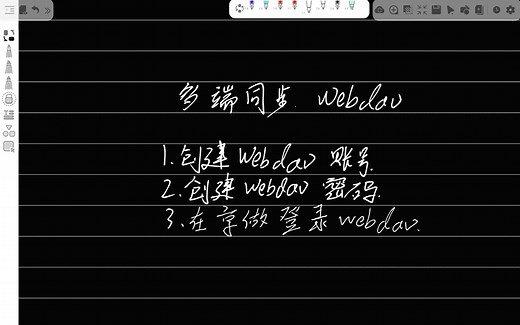 多端同步 Webdav
1.创建Webdav 账号.
2.创建webdav 密码.
3.在享做登录webdav.